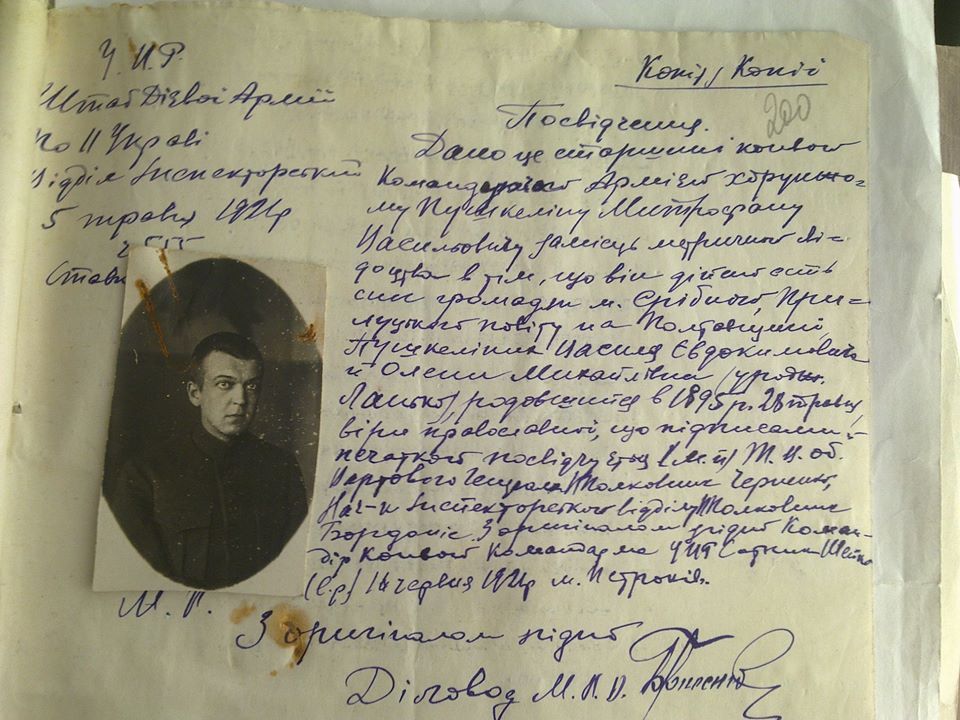 У. Н. Р.
Штаб Дієвої Армії
по II Управі
Відділ Інспекторський
5 травня 1921р
Став
Копія Копії
200
Посвідчення.
Дано це старшині конвою
Командуючого Армією хорунжо-
му Пушкеліну Митрофану
Васильовичу замісць метричного сві-
доцтва в тім, що він дійсно єсть
син громадян м. Срібного, При-
луцького повіту на Полтавщині,
Пушкеліних Василя Євдокимовича
й Олени Михайлівни
родившийся в 1895 р. 28 травня,
віри православної, що підписами й
печаткою посвідчується (М. П.) Т. В. об.
Вартового Генерала Полковник
Нач-к Інспекторського відділу Полковник
З оригіналом згідно Коман-
дір Конвою Командарма УНР Сотник
14 червня 1921р м. Петроків.
М. П.
З оригіналом згідно
Діловод М. В. О.